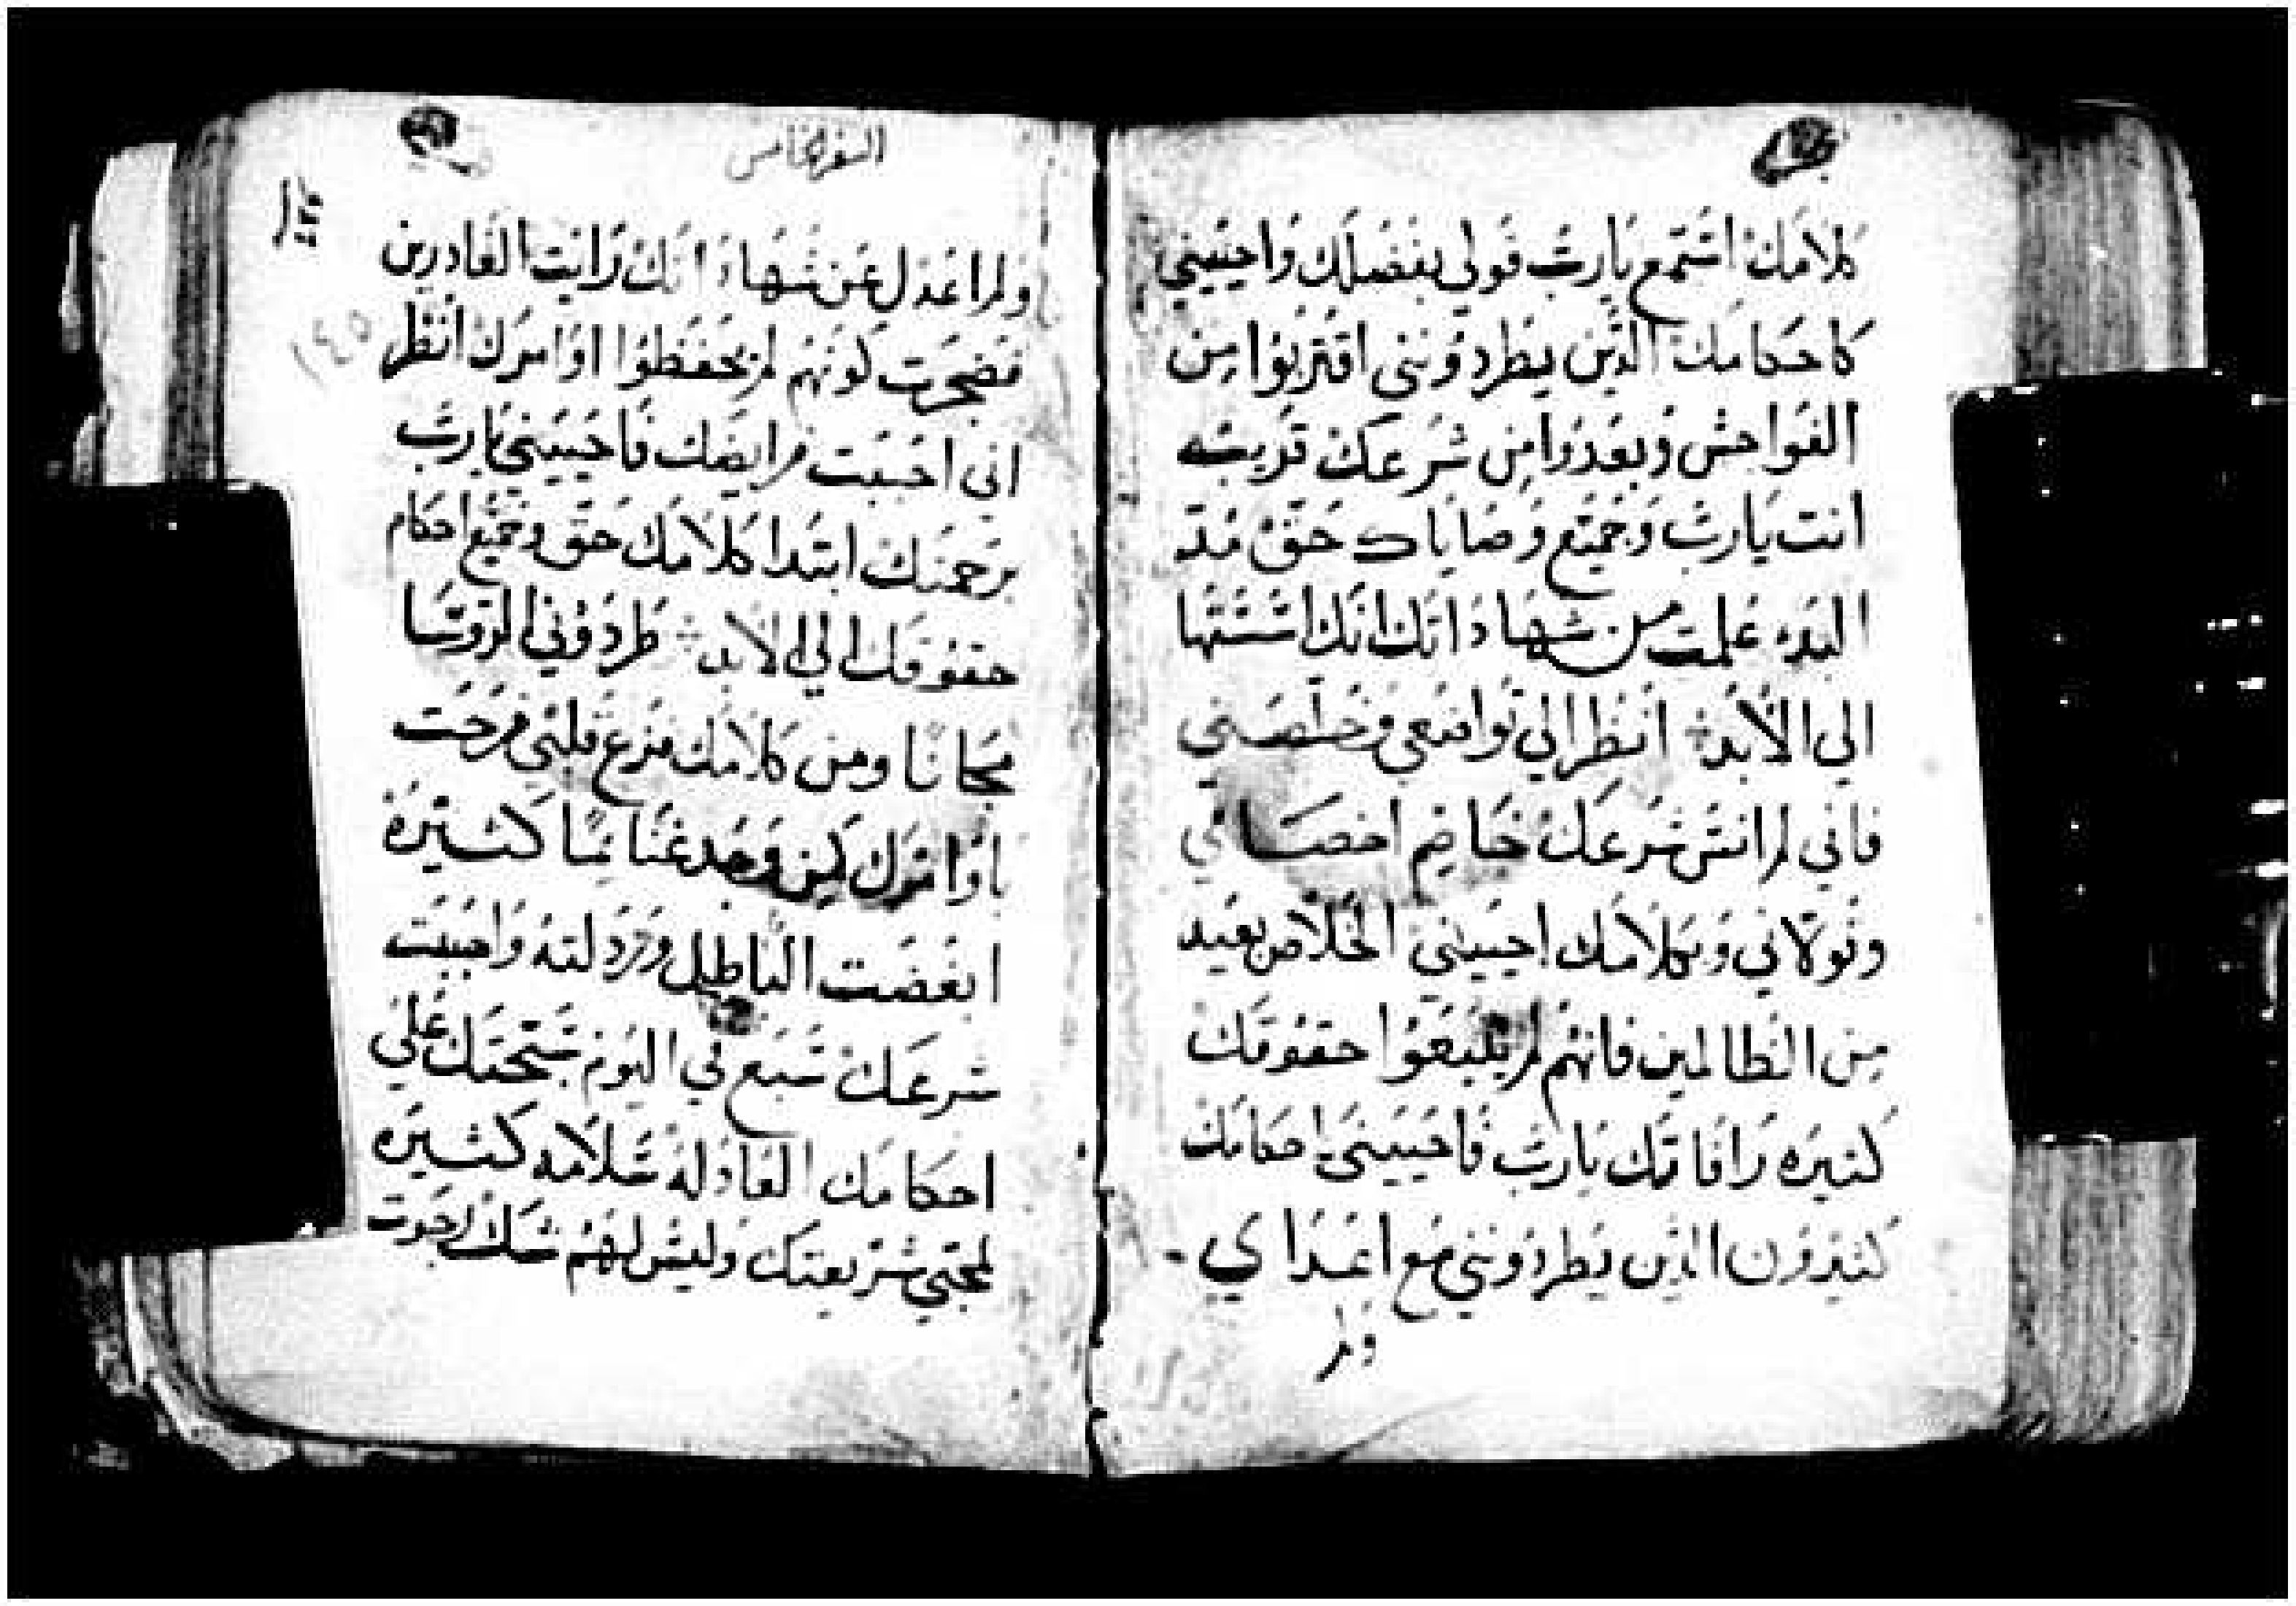 كلامك استمع يارب قولي بفضلك واحييني
كاحكامك الذين يطردونني اقتربوا من
الفواحش وبعدوا من شرعك قريب
انت يارب وجميع وصاياك حق مند
البدء علمت من شهاداتك انك اسستها
الي الابد انظر الي تواضعي وخلصني
فاني لم انس شرعك خاصم اخصامي
وتولاني وبكلامك احييني الخلاص بعيد
من الظالمين فانهم لم يتبعوا حقوقك
كثيره رافاتك يارب فاحييني باحكامك
كثيرون الذين يطردونني مع اعداي
ولم
السفر الخامس
ولم اعدل عن شهاداتك رايت الغادرين
فضجرت كونهم لم يحفظوا اوامرك انظر
اني احببت فرايضك فاحييني يارب
برحمتك ابتدا كلامك حق وجميع احكام
حقوقك الي الابد طردوني الروسا
مجانا ومن كلامك فزع قلبي فرحت
باوامرك كمن وجد غنايما كثيرة
ابغضت الباطل ورذلته واحببت
شرعك سبع في اليوم سبحتك علي
احكامك العادلة سلامه كثيره
لمحبي شريعتك وليس لهم شك رجوت